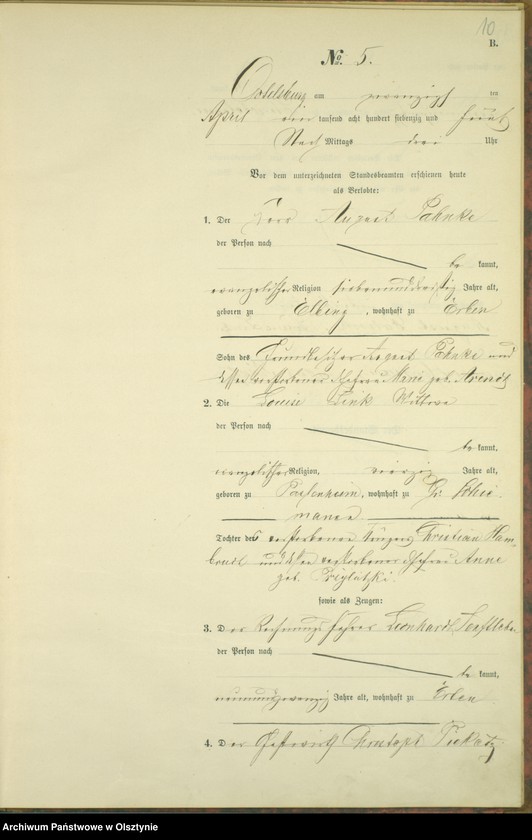 10
B.
No. 5.
Ortelsburg am zwanzigst ten
April ein tausend acht hundert siebenzig und
Nach Mittags drei Uhr
Vor dem unterzeichneten Standesbeamten erschienen heute
als Verlobte:
1. Der August Pahnke
der Person nach
be kannt,
evangelischer Religion siebenunddreißig Jahre alt,
geboren zu Elbing, wohnhaft zu Erben
Sohn des August und
verstorbenen Ehefrau geb. Arendt
2. Die Louise Link Wittwe
der Person nach
be kannt,
evangelischer Religion, vierzig Jahre alt,
geboren zu Passenheim, wohnhaft zu Gr. Schie
manen
Tochter des verstorbenen Christian
und dessen verstorbenen Ehefrau Anne
geb.
sowie als Zeugen:
3. Der Rechnungsführer Leonhard
der Person nach
be kannt,
neunundzwanzig Jahre alt, wohnhaft zu Erben
4. Der Gastwirth
Archiwum Państwowe w Olsztynie